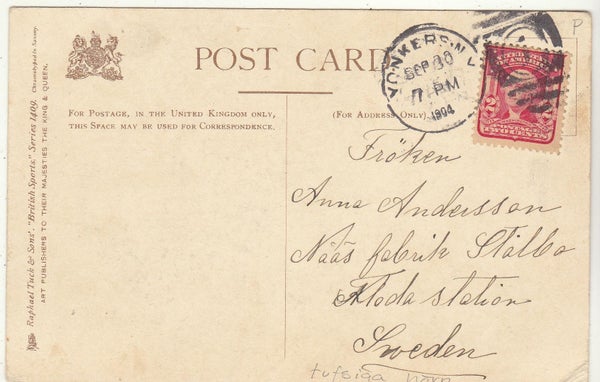 POST CARD
FOR POSTAGE, IN THE UNITED KINGDOM ONLY,
THIS SPACE MAY BE USED FOR CORRESPONDENCE.
(FOR ADDRESS ONLY)
YONKERS, N.Y.
SEP 30
7 - PM
1904
UNITED STATES
OF AMERICA
2 2
POSTAGE
TWO CENTS
P
Fröken
Anna Andersson
Nääs fabrik Stålbo
Floda station
Sweden
tufsiga barn
Raphael Tuck & Sons', "British Sports," Series 1409. Chromographed in Saxony.
ART PUBLISHERS TO THEIR MAJESTIES THE KING & QUEEN.